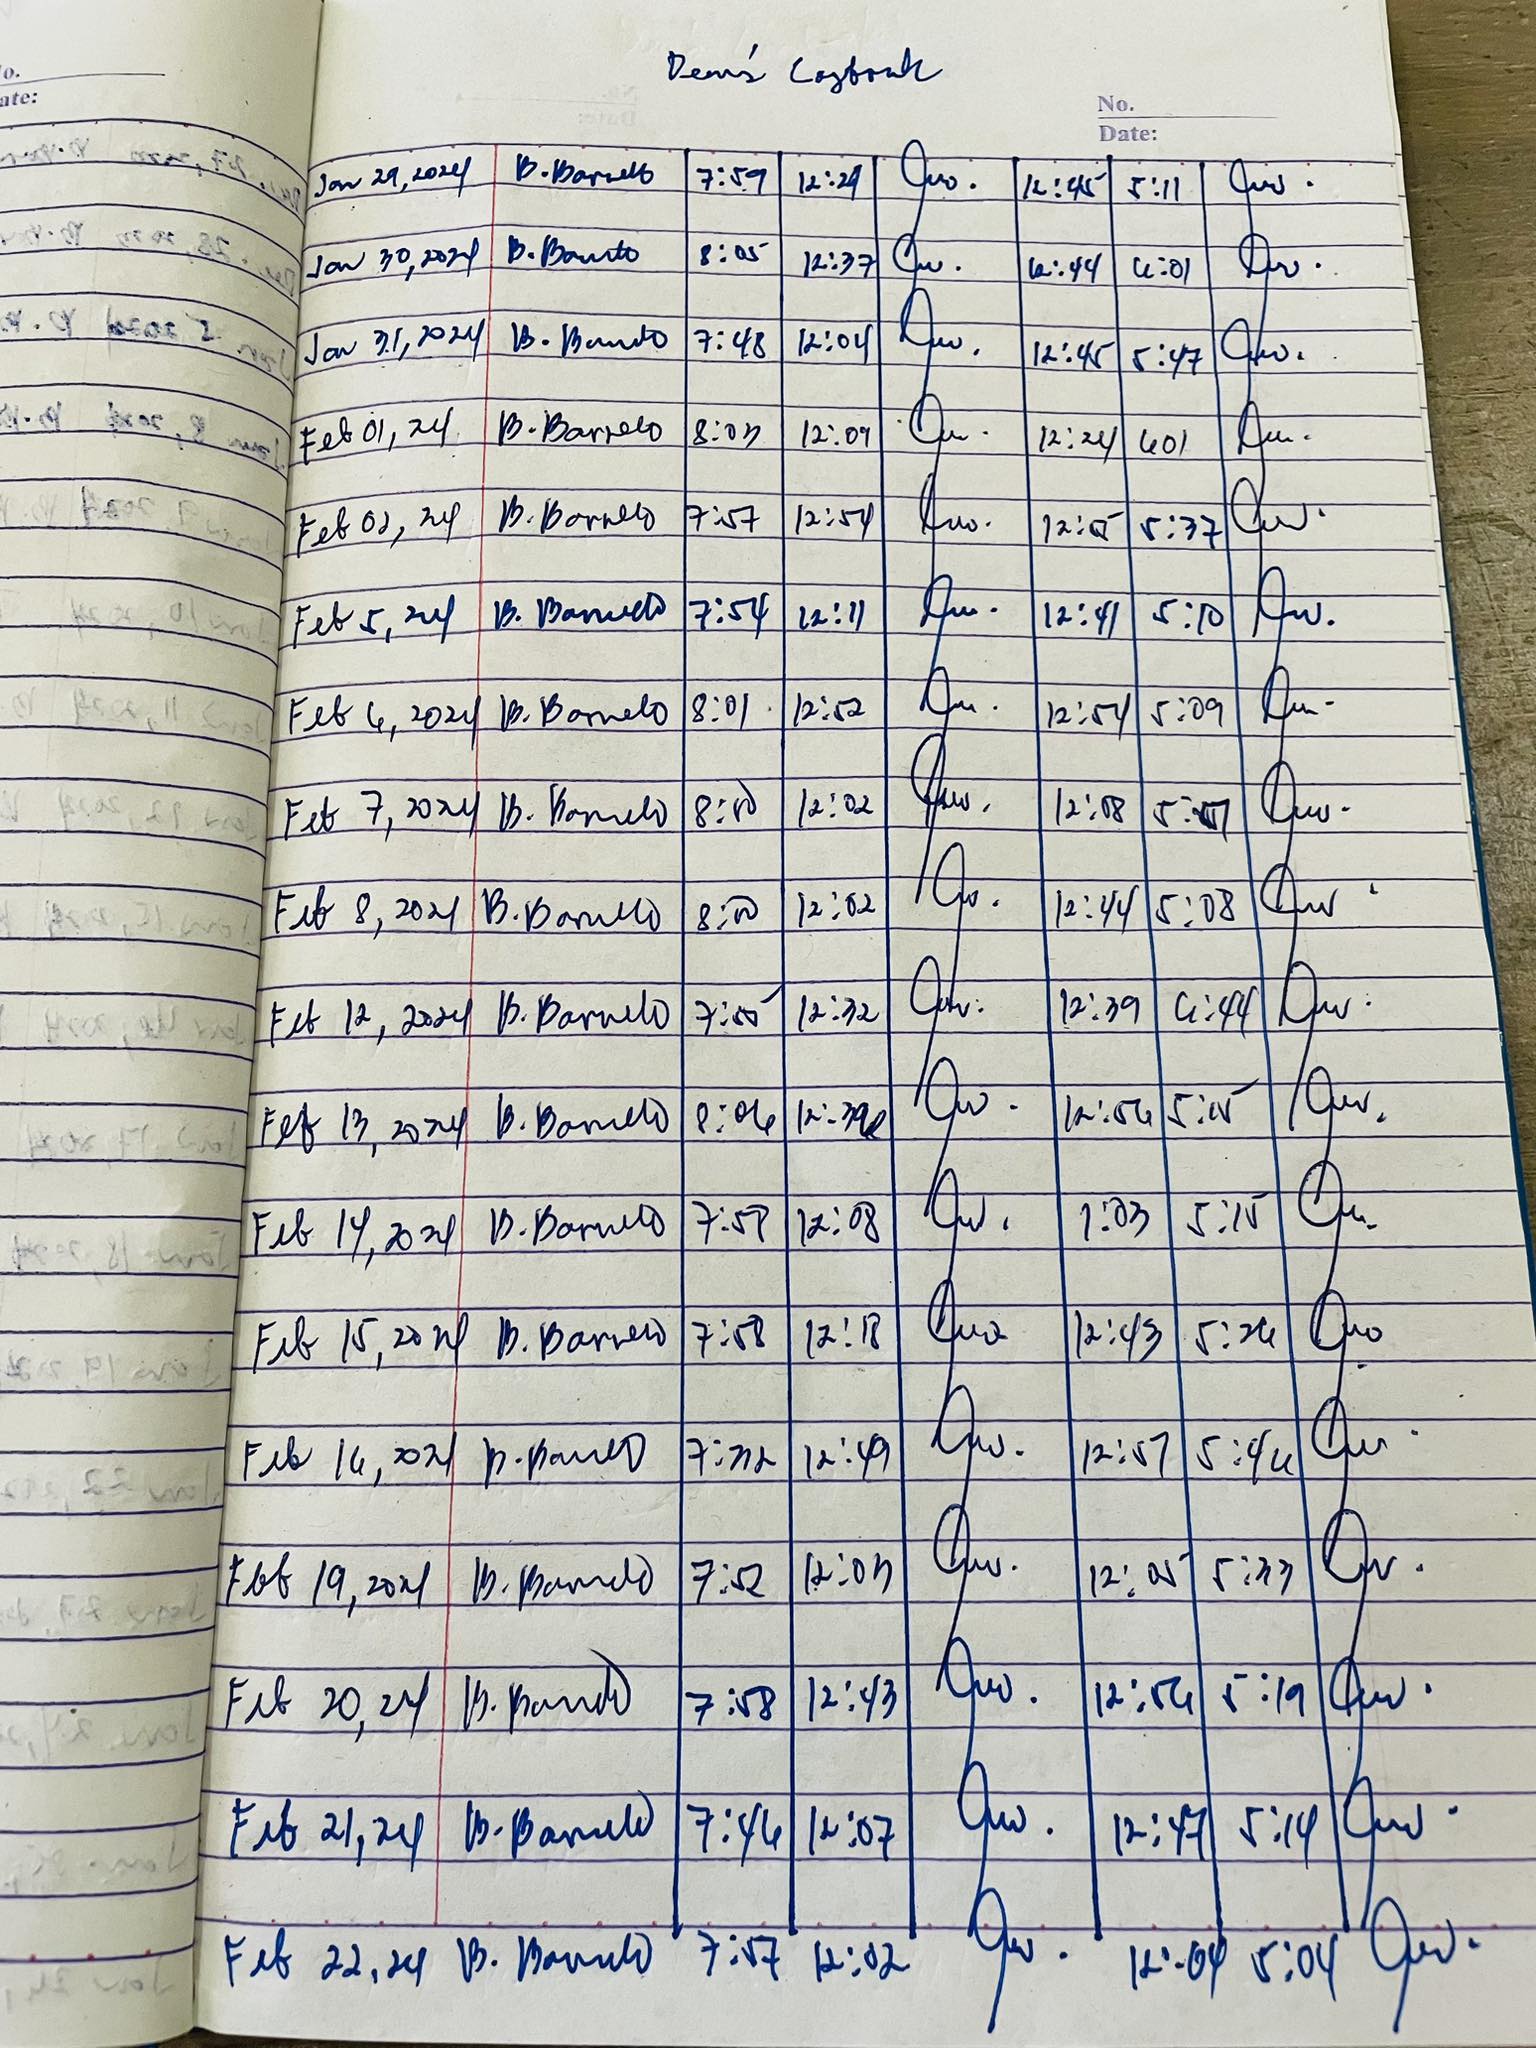 Dean's Logbook
No.
Date:
Jan 29, 2024 B. Barreto 7:59 12:29 12:45 5:11
Jan 30, 2024 B. Barreto 8:05 12:37 12:44 6:01
Jan 31, 2024 B. Barreto 7:48 12:04 12:45 5:47
Feb 01, 24 B. Barreto 8:03 12:09 12:24 601
Feb 02, 24 B. Barreto 7:57 12:54 12:55 5:37
Feb 5, 24 B. Barreto 7:54 12:11 12:41 5:10
Feb 6, 2024 B. Barreto 8:01 12:52 12:54 5:09
Feb 7, 2024 B. Barreto 8:00 12:02 12:08
Feb 8, 2024 B. Barreto 8:00 12:02 12:44 5:08
Feb 12, 2024 B. Barreto 7:55 12:32 12:39 6:44
Feb 13, 2024 B. Barreto 8:06 12:56 5:05
Feb 14, 2024 B. Barreto 12:08 1:03 5:15
Feb 15, 2024 B. Barreto 7:58 12:18 12:43 5:26
Feb 16, 2024 B. Barreto 7:32 12:49 12:57 5:46
Feb 19, 2024 B. Barreto 7:52 12:03 12:05 5:33
Feb 20, 24 B. Barreto 7:58 12:43 12:56 5:19
Feb 21, 24 B. Barreto 7:46 12:07 12:47 5:14
Feb 22, 24 B. Barreto 7:57 12:02 12:04 5:04